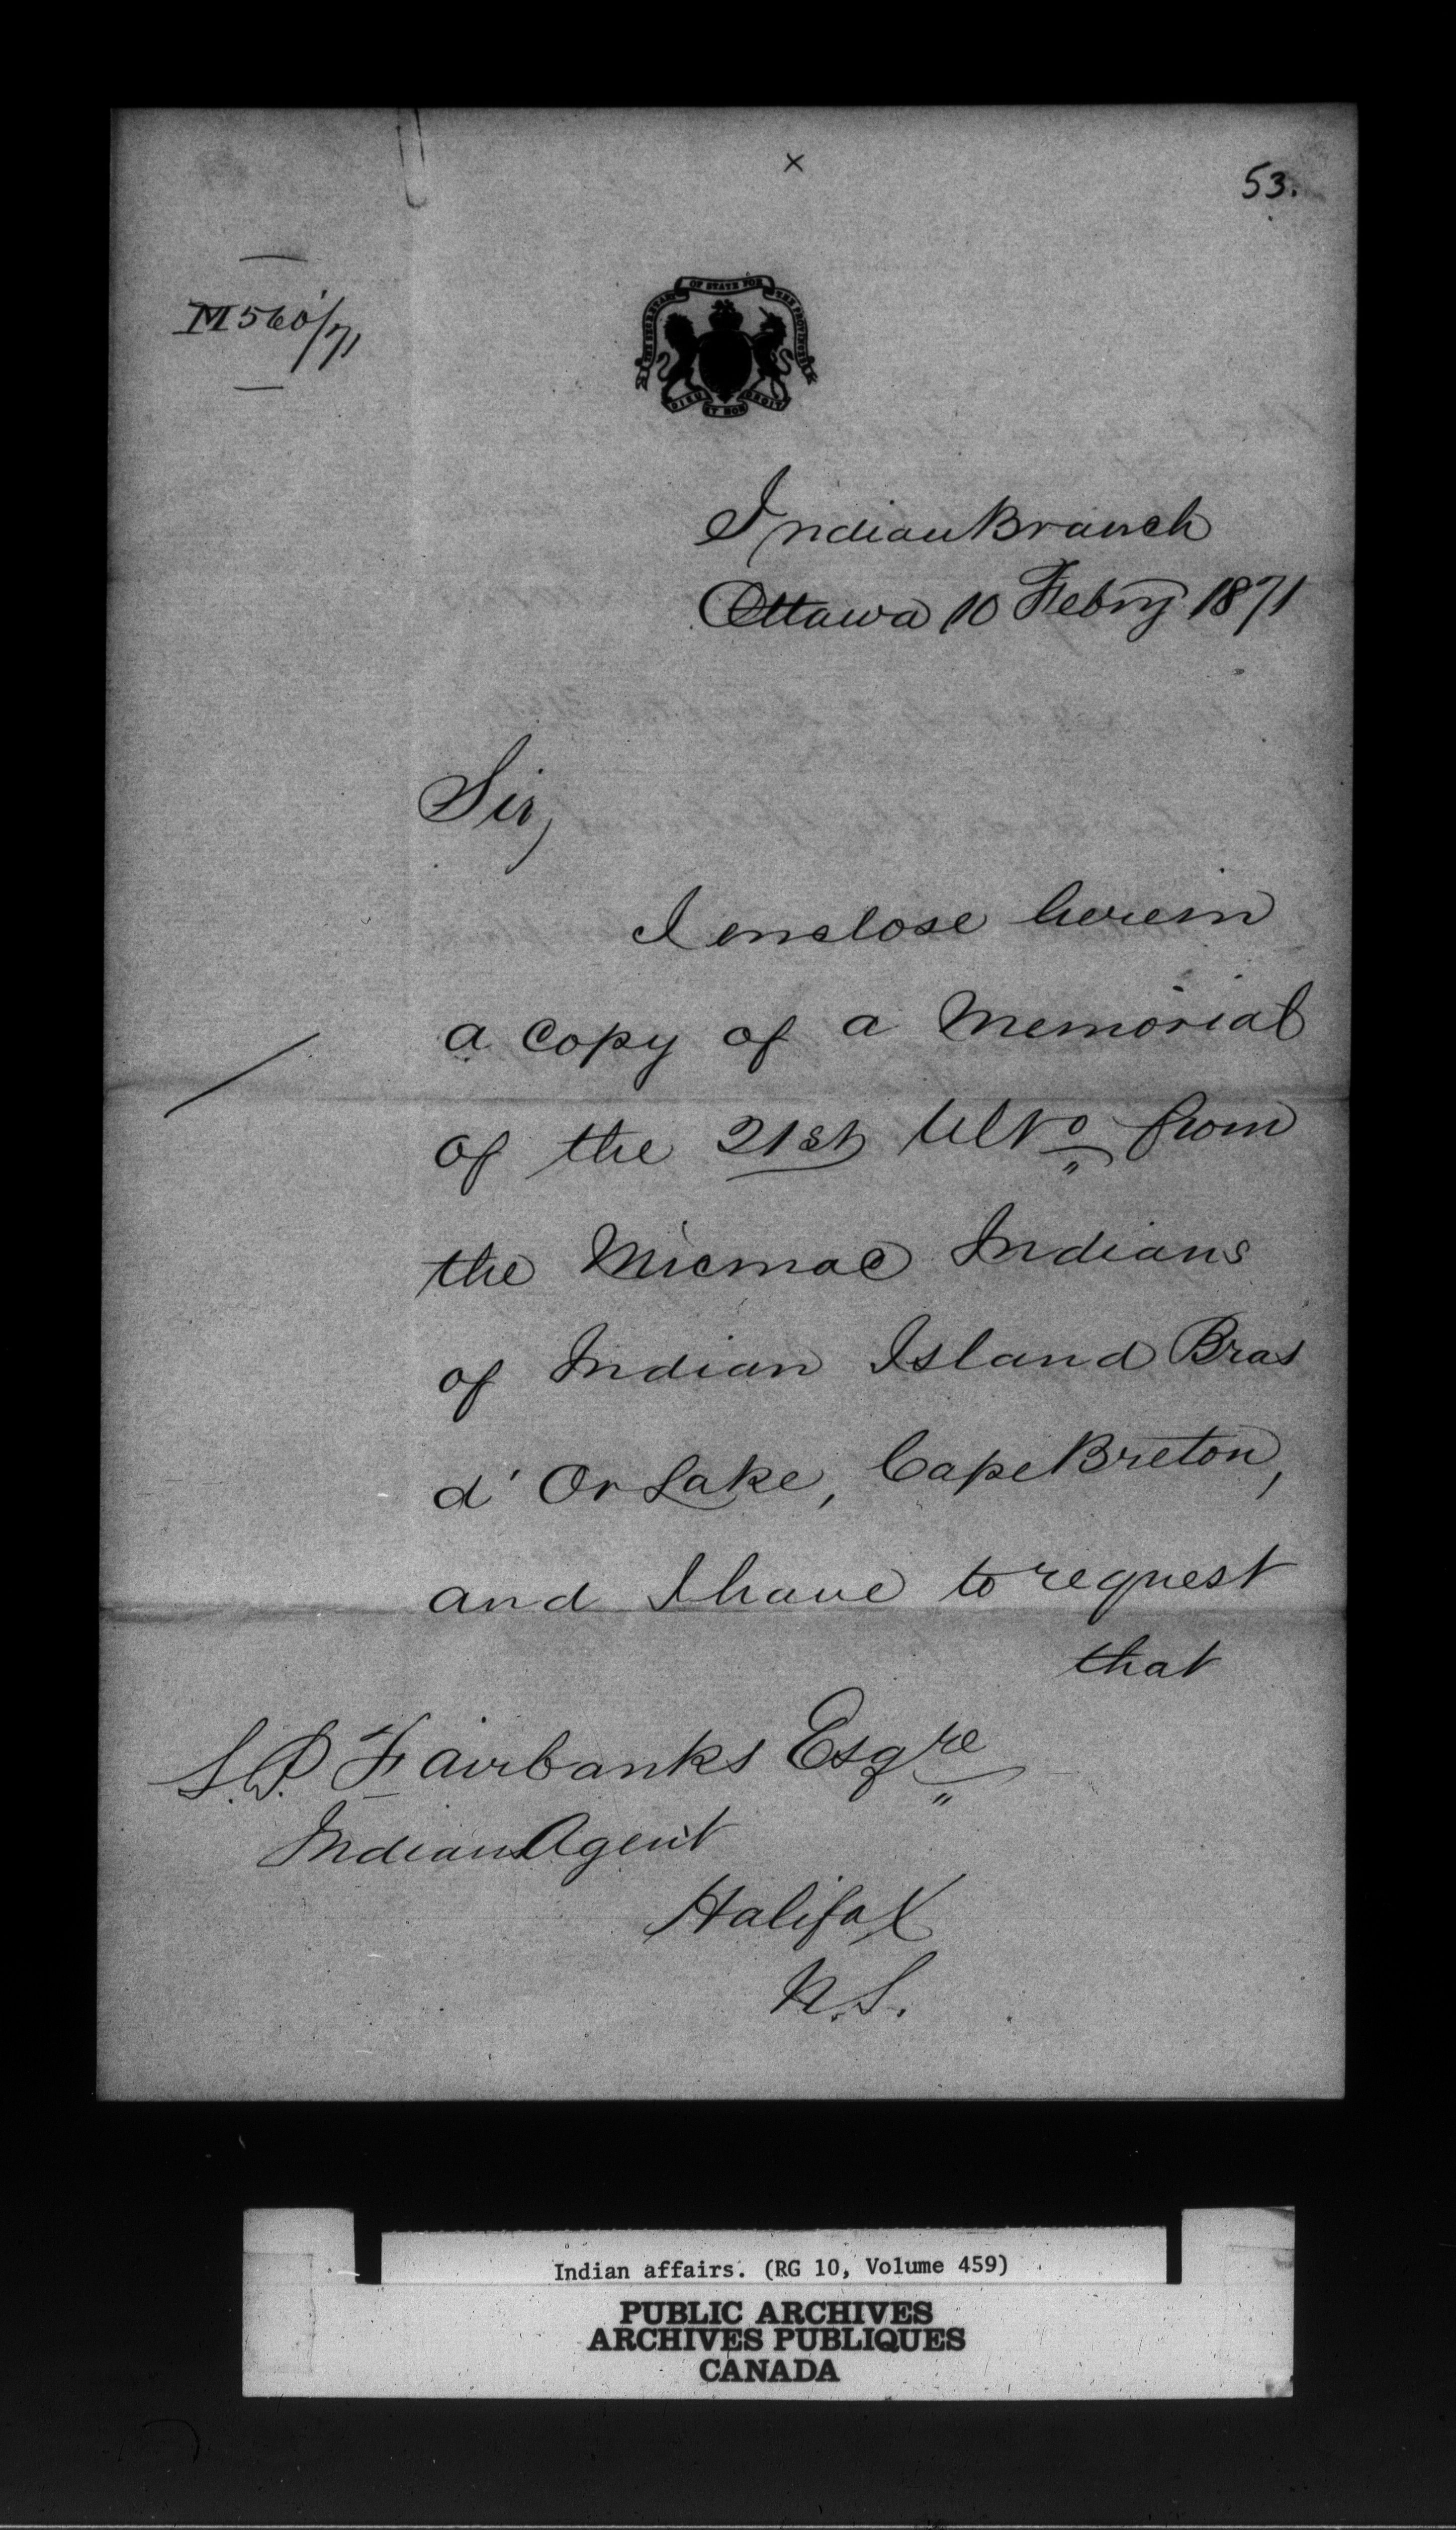 x
53.
M560/71
THE SECRETARY OF STATE FOR THE PROVINCES
DIEU ET MON DROIT
Indian Branch
Ottawa 10 Febry 1871
Sir,
I enclose herein
a copy of a Memorial
of the 21st Ulto from
the Micmac Indians
of Indian Island Bras
d'Or Lake, Cape Breton,
and I have to request
that
S.P. Fairbanks Esqre
Indian Agent
Halifax
N.S.
Indian affairs. (RG 10, Volume 459)
PUBLIC ARCHIVES
ARCHIVES PUBLIQUES
CANADA